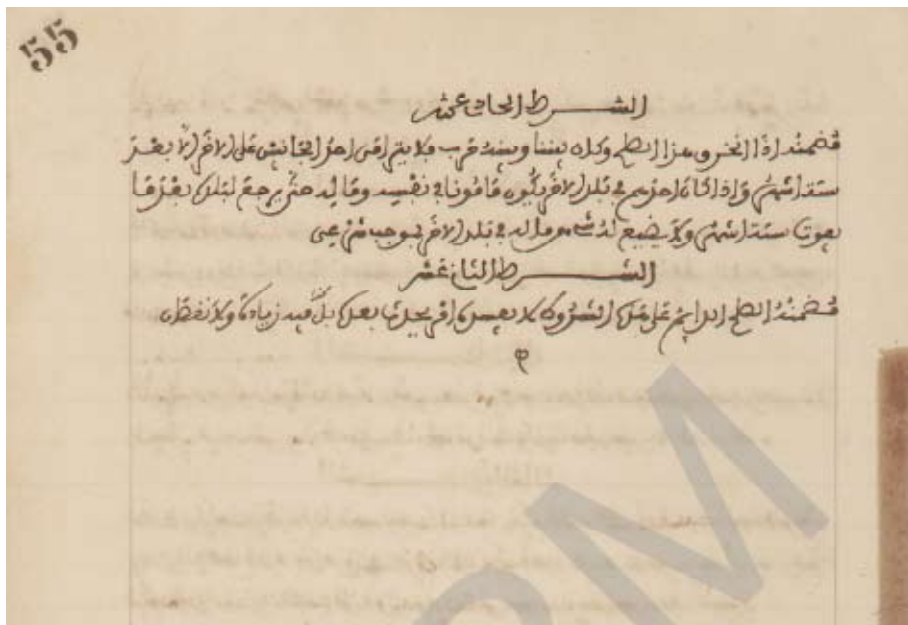 55
الشرط الحادى عشر
مضمنه اذا انخرق هذا الصلح وكان بيننا وبينه حرب فلا يترامى احد الجانبين على الاخر الا بعد
ستة اشهر واذا كان احدهم في بلد الاخر يكون مامونا في نفسه وماله حتى يرجع لبلده بعد
ستة اشهر ولا يضيع له شيء من ماله في بلد الاخر
الشرط الثاني عشر
مضمنه الصلح على هذه الشروط زيادة ولا نقصان
PM